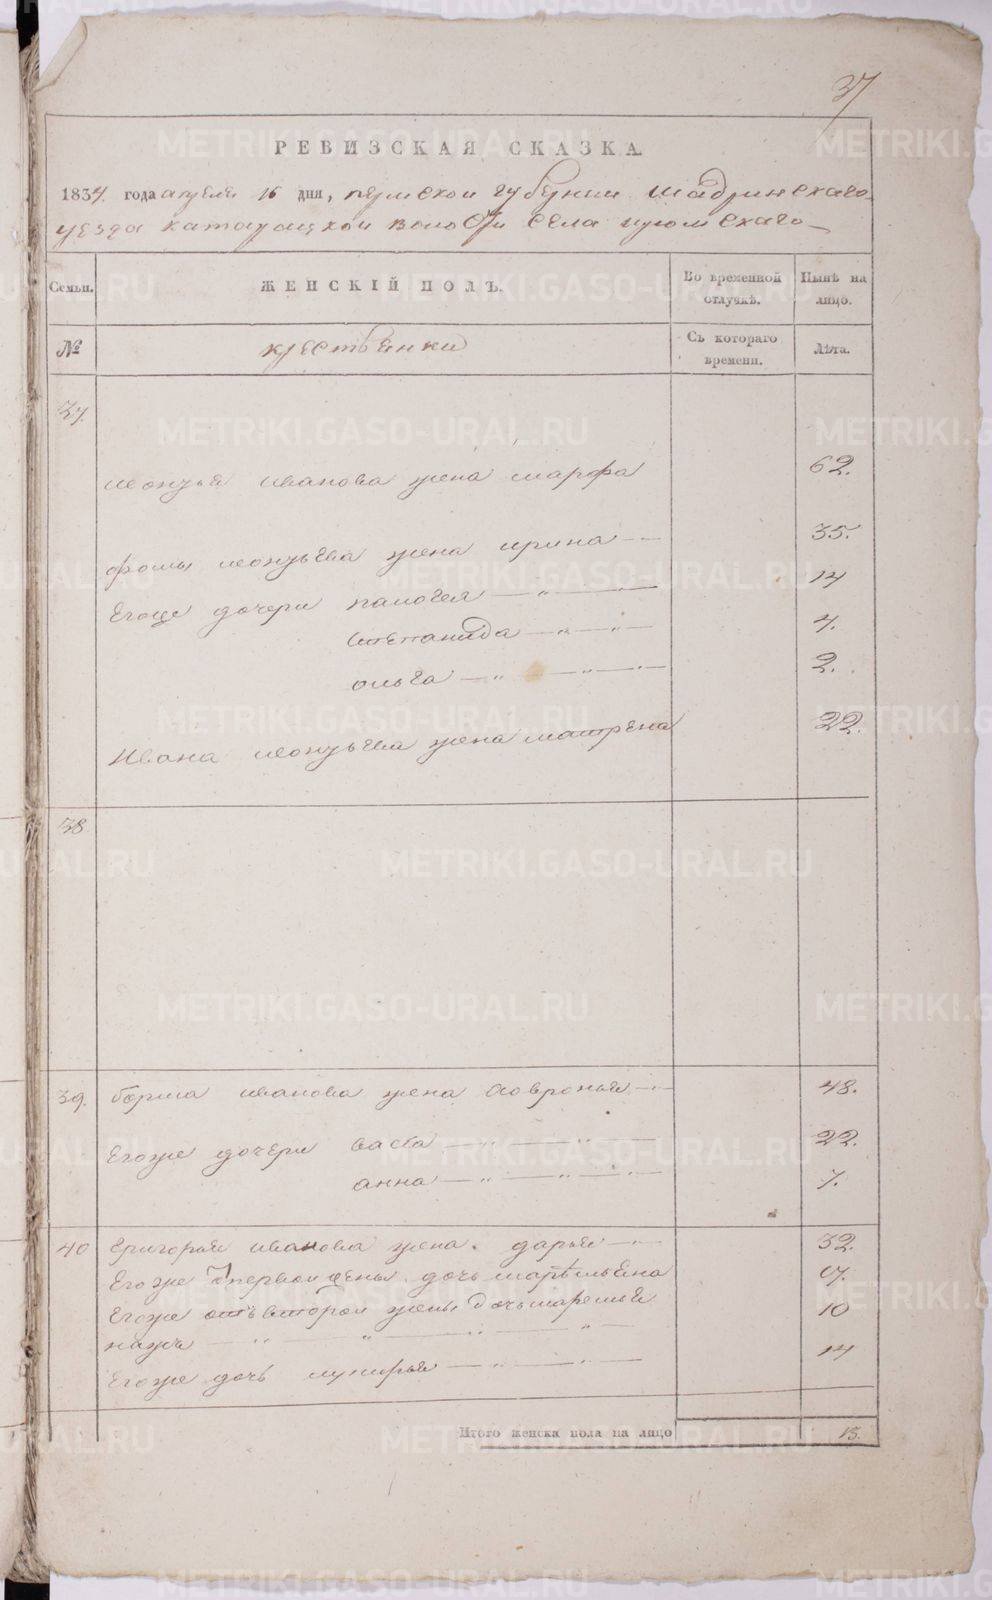 37
РЕВИЗСКАЯ СКАЗКА.
1834. года апреля 16 дня, пермской губернии шадринскаго
уезда катайской волости села
Семьи. ЖЕНСКІЙ ПОЛЪ. Во временной отлучкѣ. Нынѣ на лицо.
№ крестьянки Съ котораго времени. Лѣта.
37.
леонтья иванова жена марфа 62.
фомы леонтьева жена ирина 35.
Егоже дочери палогея 14
степанида 4.
ольга 2.
Ивана леонтьева жена матрена 22.
38
39. иванова жена ховронья 48.
Егоже дочери васса 22.
анна 7.
40 Григорья иванова жена дарья 32.
Егоже первой жены дочь 17.
Егоже отъ второй жены дочь 10
Егоже дочь лукерья 14
Итого женска пола на лицо 13.
METRIKI.GASO-URAL.RU